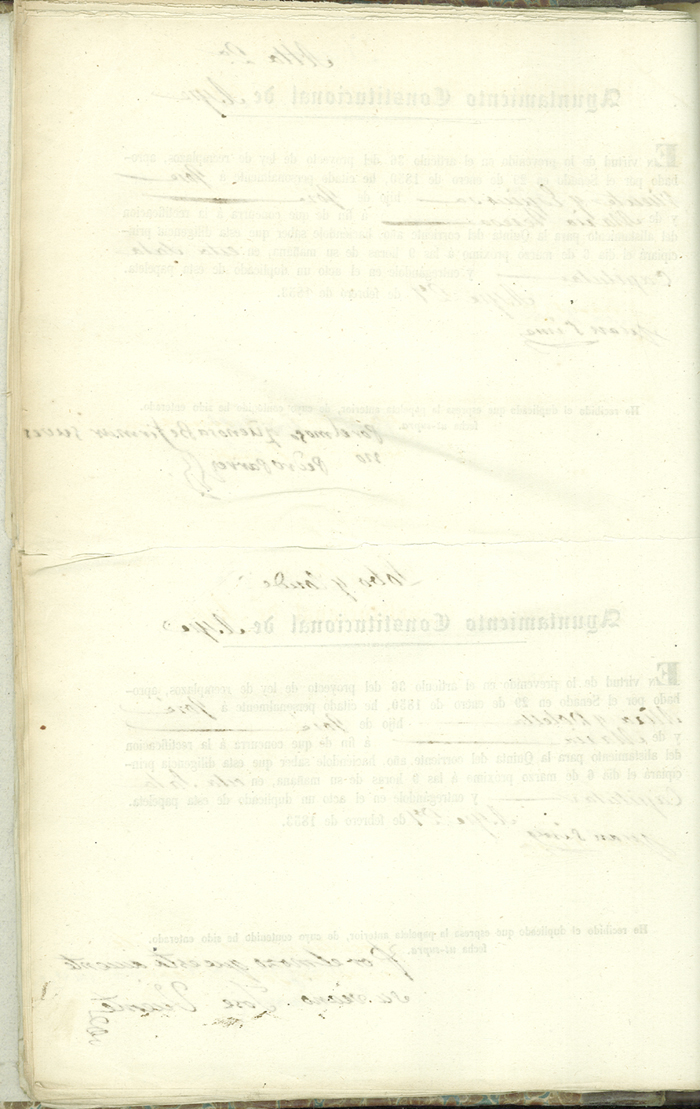 Ayuntamiento Constitucional de Aspe
En virtud de lo prevenido en el artículo 36 del proyecto de ley de reemplazos, apro-
bado por el Senado en 29 de enero de 1850, he citado personalmente á José
hijo de José
y de María á fin de que concurra á la rectificacion
del alistamiento para la Quinta del corriente año, haciéndole saber que esta diligencia prin-
cipiará el dia 6 de marzo próximo á las 9 horas de su mañana, en esta Sala
Capitular y entregándole en el acto un duplicado de esta papeleta.
Aspe 27 de febrero de 1853.
Ha recibido el duplicado que espresa la papeleta anterior, de cuyo contenido ha sido enterado.
fecha ut-supra.
Por el moso que no sabe firmar su veci
no
Ayuntamiento Constitucional de Aspe
En virtud de lo prevenido en el artículo 36 del proyecto de ley de reemplazos, apro-
bado por el Senado en 29 de enero de 1850, he citado personalmente á José
hijo de José
y de María á fin de que concurra á la rectificacion
del alistamiento para la Quinta del corriente año, haciéndole saber que esta diligencia prin-
cipiará el dia 6 de marzo próximo á las 9 horas de su mañana, en esta Sala
Capitular y entregándole en el acto un duplicado de esta papeleta.
Aspe 27 de febrero de 1853.
Ha recibido el duplicado que espresa la papeleta anterior, de cuyo contenido ha sido enterado.
fecha ut-supra.
Por el moso que está ausente
su vecino José Vicente